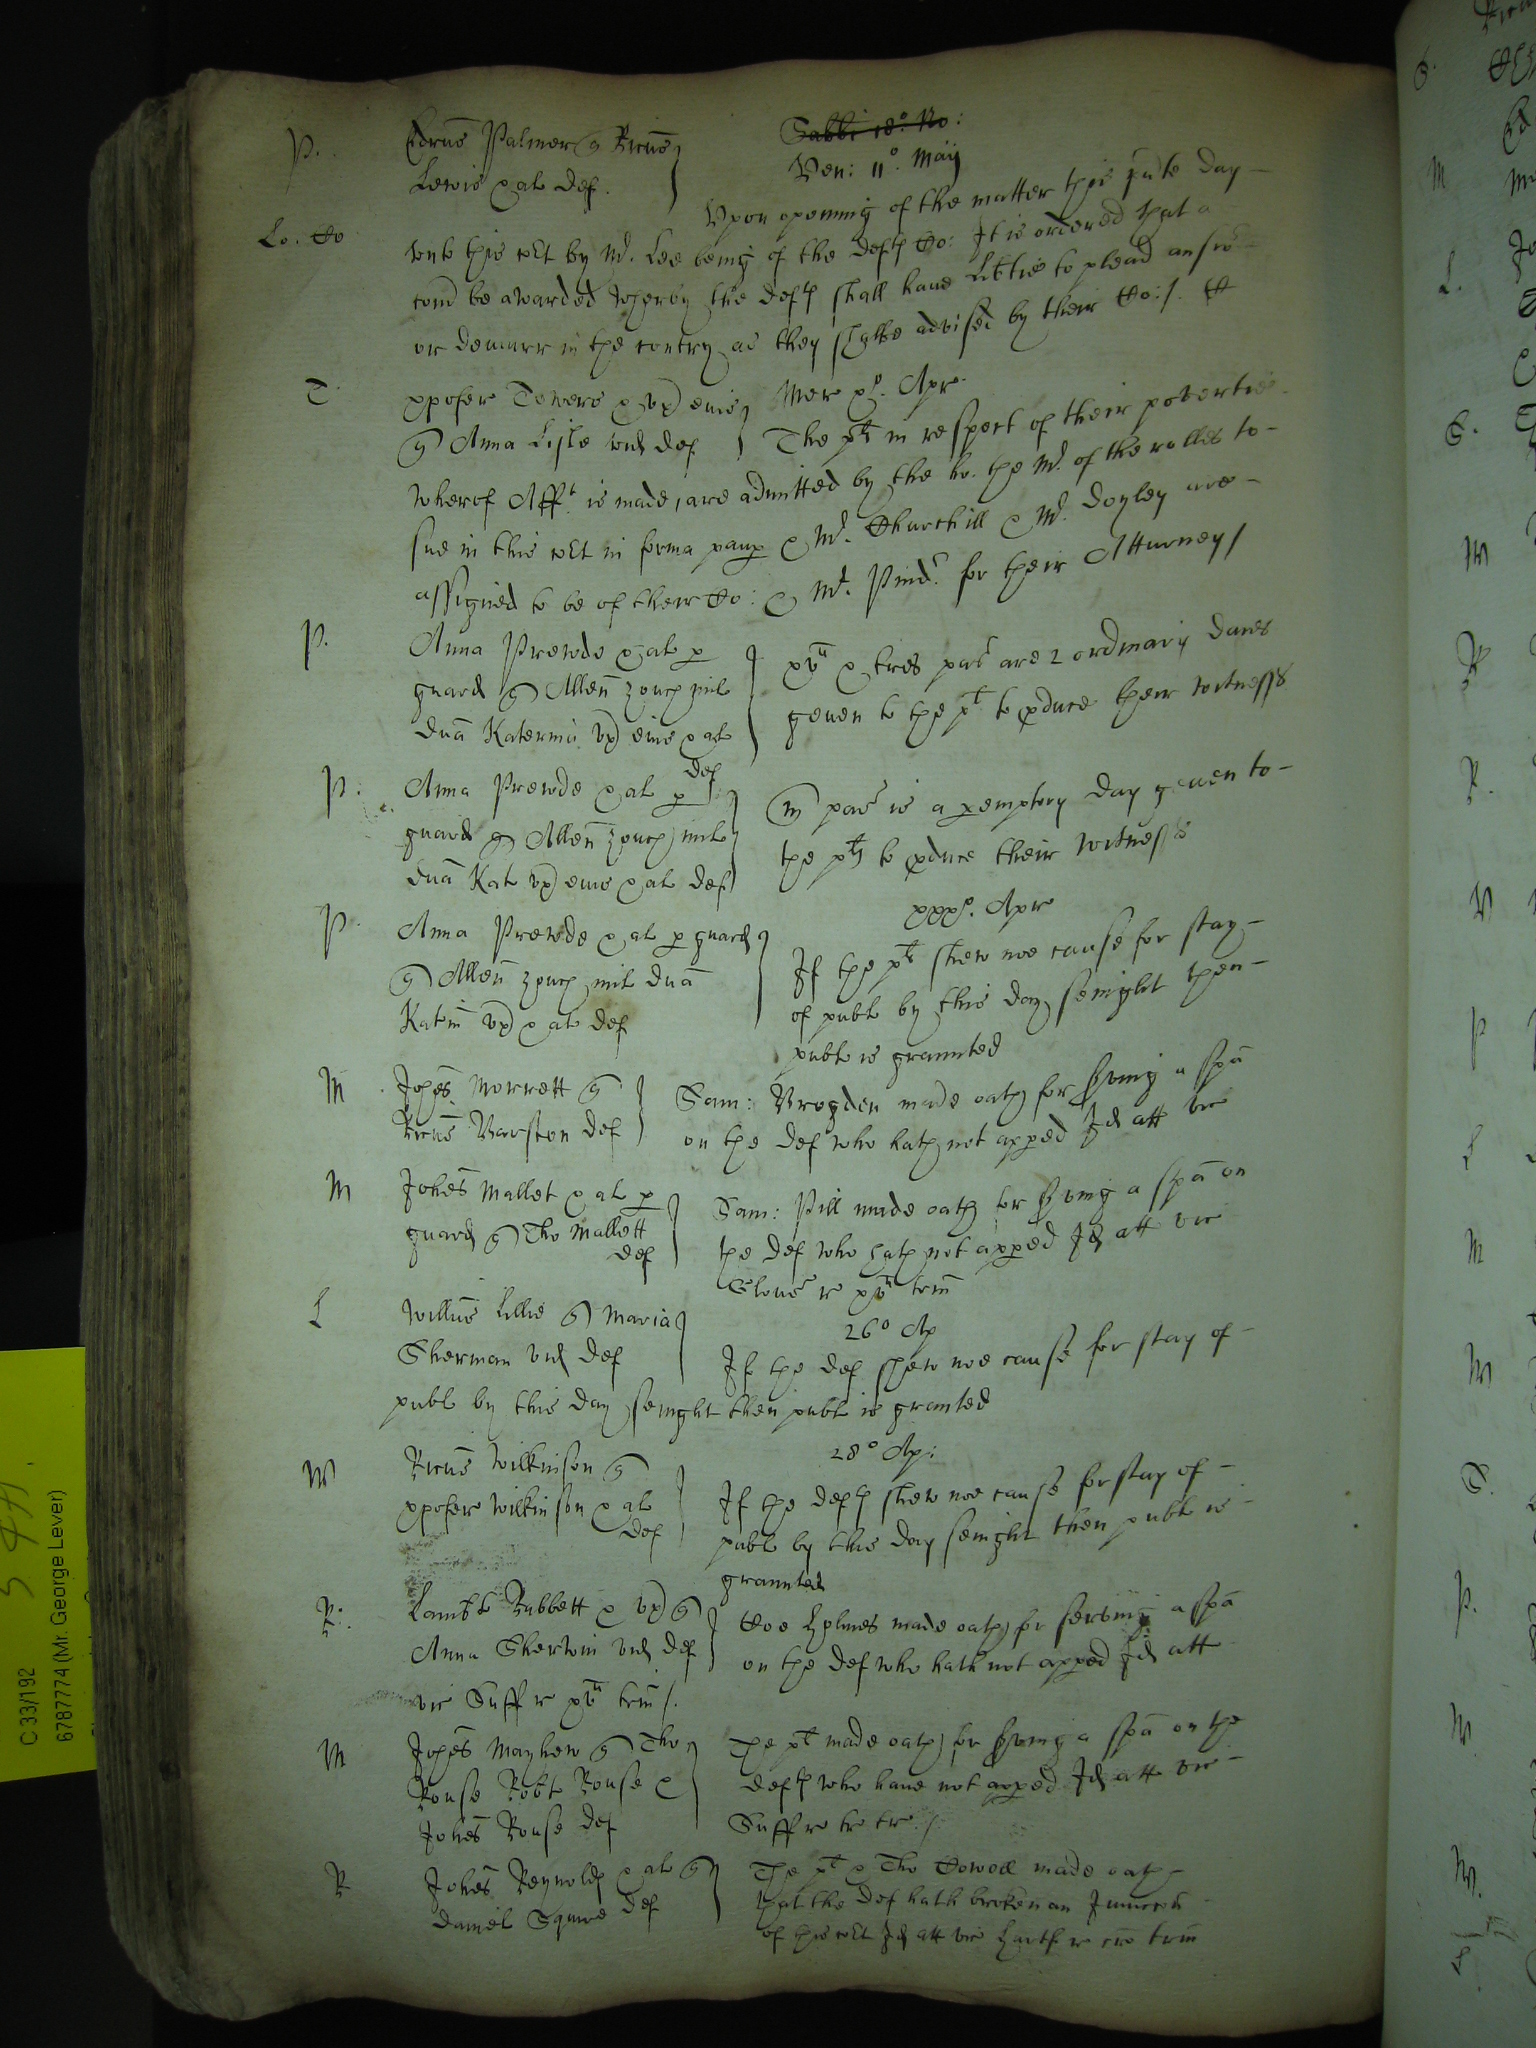 P. Edrus Palmer q Ricus
Lewis & al def.
Sabbi 18º. No:
Ven: 11º. Maij
Vpon openinig of the matter this pnte day
Lo. Co vnto this cort by Mr. Lee being of the deftes Co: It is ordered that a
com be awarded wherby the deftes shall haue libtie to plead answ
or demurr in the contry as they shalbe advised by their Co:/.
T xpofer Towers & vx eius
q Anna Lisle vid def
Mer xjº. Apr
The plt in respect of their povertie
wherof Afft. is made, are admitted by the ho. the Mr. of the rolles to
sue in this cort in forma paup & Mr. Churchill & Mr. Doyley are
assigned to be of their Co: & Mr. Pind for their Atturney/
P. Anna Prewde & al p
guard q Allen zouch mil
dna Katerin vx eius & al
def
xv & tres pas are 2 ordinary daies
geuen to the plt to pduce their witnesses
P. Anna Prewde & al p
guard q Allen zouch mil
dna Kat vx eius & al def
m pas is a pemptory day geuen to
the plts to pduce their witnesses
P. Anna Prewde & al p guard
q Allen zouch mil dna
Katin vx & al def
xxxº. Apr
If the plts shew noe cause for stay
of publ by this day senight then
publ is graunted
M Johes Morrett q
Ricus Barston def
Sam: Brogden made oath for serving a spa
on the def who hath not apped Id att vic
M Johes Mallet & al p
guard q Tho Mallett
def
Sam: Pill made oath for serving a spa on
the def who hath not apped Id att vic
Glouc re xv trin
L Willus Lillie q Maria
Sherman vid def
26º Ap
If the def shew noe cause for stay of
publ by this day senight then publ is granted
W Ricus Wilkinson q
xpofer Wilkinson & al
def
28º Ap:
If the deftes shew noe cause for stay of
publ by this day senight then publ is
graunted
R: Lambt Rubbett & vx q
Anna Sherwin vid def
Coe Holmes made oath for serving a spa
on the def who hath not apped Id att
vic Suff re xv trin/.
M Johes Mayhew q Tho
Rouse Robt Rouse &
Johes Rouse def
The plt made oath for serving a spa on the
deftes who haue not apped Id att vic
Suff re tr tr./
R Johes Reynoldes & al q
Daniel Squire def
The plt & Tho Cowell made oath
that the def hath broken an Iniuncc
of this cort Id att vic Hartf re cro trin
C 33/192
6787774 (Mr. George Lever)